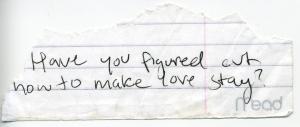 Have you figured out
how to make love stay?
Mead